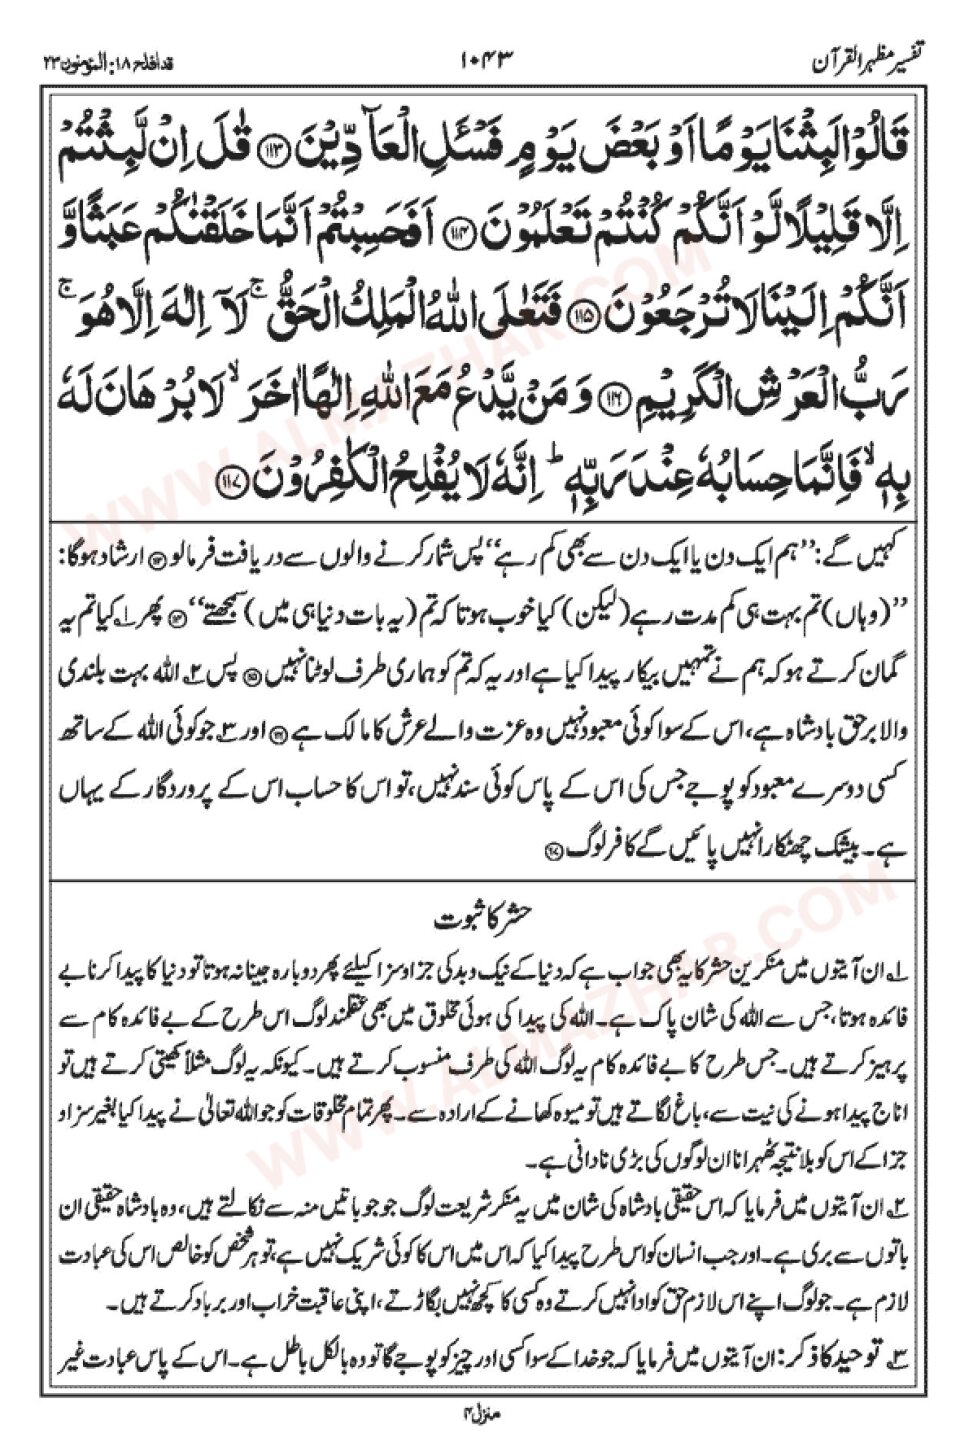 تفسیر مظہر القرآن ۱۰۴۳ قد افلح ۱۸: المؤمنون ۲۳
قَالُوْا لَبِثْنَا يَوْمًا اَوْ بَعْضَ يَوْمٍ فَسْـَٔلِ الْعَآدِّيْنَ ﴿۱۱۳﴾ قٰلَ اِنْ لَّبِثْتُمْ
اِلَّا قَلِيْلًا لَّوْ اَنَّكُمْ كُنْتُمْ تَعْلَمُوْنَ ﴿۱۱۴﴾ اَفَحَسِبْتُمْ اَنَّمَا خَلَقْنٰكُمْ عَبَثًا وَّ
اَنَّكُمْ اِلَيْنَا لَا تُرْجَعُوْنَ ﴿۱۱۵﴾ فَتَعٰلَى اللّٰهُ الْمَلِكُ الْحَقُّ ۚ لَآ اِلٰهَ اِلَّا هُوَ ۚ
رَبُّ الْعَرْشِ الْكَرِيْمِ ﴿۱۱۶﴾ وَ مَنْ يَّدْعُ مَعَ اللّٰهِ اِلٰهًا اٰخَرَ ۙ لَا بُرْهَانَ لَهٗ
بِهٖ ۙ فَاِنَّمَا حِسَابُهٗ عِنْدَ رَبِّهٖ ؕ اِنَّهٗ لَا يُفْلِحُ الْكٰفِرُوْنَ ﴿۱۱۷﴾
کہیں گے: ’’ہم ایک دن یا ایک دن سے بھی کم رہے‘‘ پس شمار کرنے والوں سے دریافت فرمالو ﴿۱۱۳﴾ ارشاد ہوگا:
’’(وہاں) تم بہت ہی کم مدت رہے (لیکن) کیا خوب ہوتا کہ تم (یہ بات دنیا ہی میں) سمجھتے‘‘ ﴿۱۱۴﴾ پھر ۱؎ کیا تم یہ
گمان کرتے ہو کہ ہم نے تمہیں بیکار پیدا کیا ہے اور یہ کہ تم کو ہماری طرف لوٹنا نہیں ﴿۱۱۵﴾ پس ۲؎ اللہ بہت بلندی
والا برحق بادشاہ ہے، اس کے سوا کوئی معبود نہیں وہ عزت والے عرش کا مالک ہے ﴿۱۱۶﴾ اور ۳؎ جو کوئی اللہ کے ساتھ
کسی دوسرے معبود کو پوجے جس کی اس کے پاس کوئی سند نہیں، تو اس کا حساب اس کے پروردگار کے یہاں
ہے۔ بیشک چھٹکارا نہیں پائیں گے کافر لوگ ﴿۱۱۷﴾
حشر کا ثبوت
۱؎ ان آیتوں میں منکرین حشر کا یہ بھی جواب ہے کہ دنیا کے نیک و بد کی جزا و سزا کیلئے پھر دوبارہ جینا نہ ہوتا تو دنیا کا پیدا کرنا بے
فائدہ ہوتا، جس سے اللہ کی شان پاک ہے۔ اللہ کی پیدا کی ہوئی مخلوق میں بھی عقلمند لوگ اس طرح کے بے فائدہ کام سے
پرہیز کرتے ہیں۔ جس طرح کا بے فائدہ کام یہ لوگ اللہ کی طرف منسوب کرتے ہیں۔ کیونکہ یہ لوگ مثلاً کھیتی کرتے ہیں تو
اناج پیدا ہونے کی نیت سے، باغ لگاتے ہیں تو میوہ کھانے کے ارادہ سے۔ پھر تمام مخلوقات کو جو اللہ تعالیٰ نے پیدا کیا بغیر سزا و
جزا کے اس کو بلا نتیجہ ٹھہرانا ان لوگوں کی بڑی نادانی ہے۔
۲؎ ان آیتوں میں فرمایا کہ اس حقیقی بادشاہ کی شان میں یہ منکر شریعت لوگ جو جو باتیں منہ سے نکالتے ہیں، وہ بادشاہ حقیقی ان
باتوں سے بری ہے۔ اور جب انسان کو اس طرح پیدا کیا کہ اس میں اس کا کوئی شریک نہیں ہے، تو ہر شخص کو خالص اس کی عبادت
لازم ہے۔ جو لوگ اپنے اس لازم حق کو ادا نہیں کرتے وہ کسی کا کچھ نہیں بگاڑتے، اپنی عاقبت خراب اور برباد کرتے ہیں۔
۳؎ توحید کا ذکر: ان آیتوں میں فرمایا کہ جو خدا کے سوا کسی اور چیز کو پوجے گا تو وہ بالکل باطل ہے۔ اس کے پاس عبادت غیر
منزل ۴
WWW.ALMAZHAR.COM
WWW.ALMAZHAR.COM